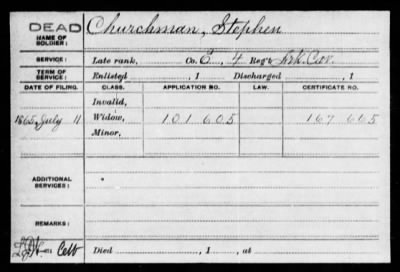 DEAD
NAME OF SOLDIER: Churchman, Stephen
SERVICE: Late rank, Co. E, 4 Reg't Ark Cav.
TERM OF SERVICE: Enlisted , 1 Discharged , 1
DATE OF FILING. CLASS. APPLICATION NO. LAW. CERTIFICATE NO.
Invalid,
1865 July 11 Widow, 101 605 167 665
Minor,
ADDITIONAL SERVICES:
REMARKS:
Died , 1 , at